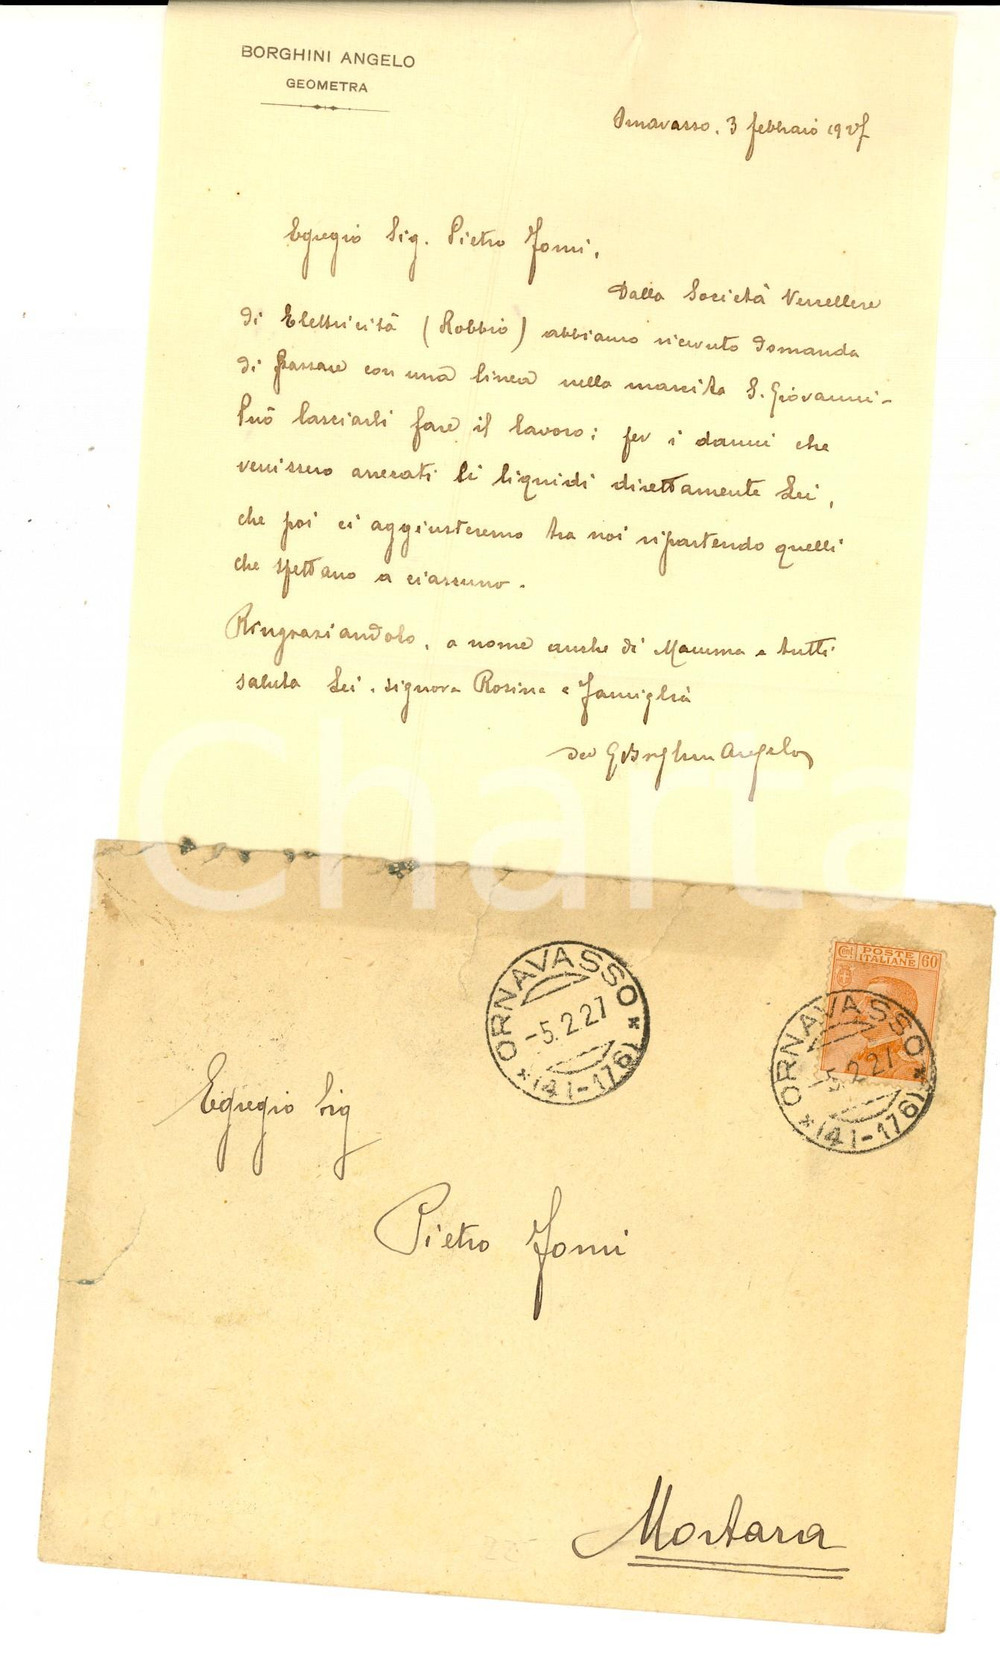 BORGHINI ANGELO
GEOMETRA
Ornavasso, 3 febbraio 1927
Egregio Sig. Pietro Jomi,
Dalla Società Vercellese
di Elettricità (Robbio) abbiamo ricevuto domanda
di passare con una linea nella marcita S. Giovanni-
Può lasciarli fare il lavoro; per i danni che
venissero arrecati li liquidi direttamente Lei,
che poi ci aggiusteremo tra noi ripartendo quelli
che spettano a ciascuno.
Ringraziandolo, a nome anche di Mamma e tutti
saluto Lei, signora Rosina e Famiglia
Borghini Angelo
Charta
ORNAVASSO
-5.2.27
* (41-176) *
POSTE ITALIANE 60
Cent
ORNAVASSO
-5.2.27
* (41-176) *
Egregio Sig
Pietro Jomi
Mortara